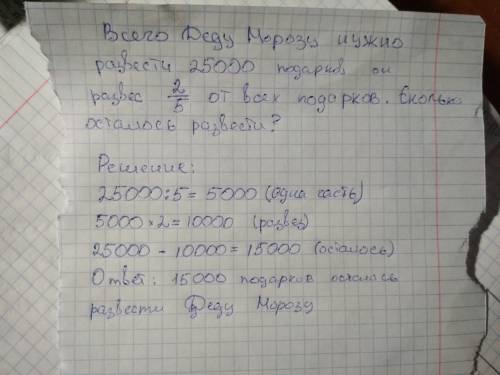 Всего Деду Морозу нужно
развести 25000 подарков он
развес 2/5 от всех подарков. Сколько
осталось развести?
Решение:
25000:5=5000 (одна часть)
5000×2=10000 (развез)
25000-10000=15000 (осталось)
Ответ: 15000 подарков осталось
развести Деду Морозу